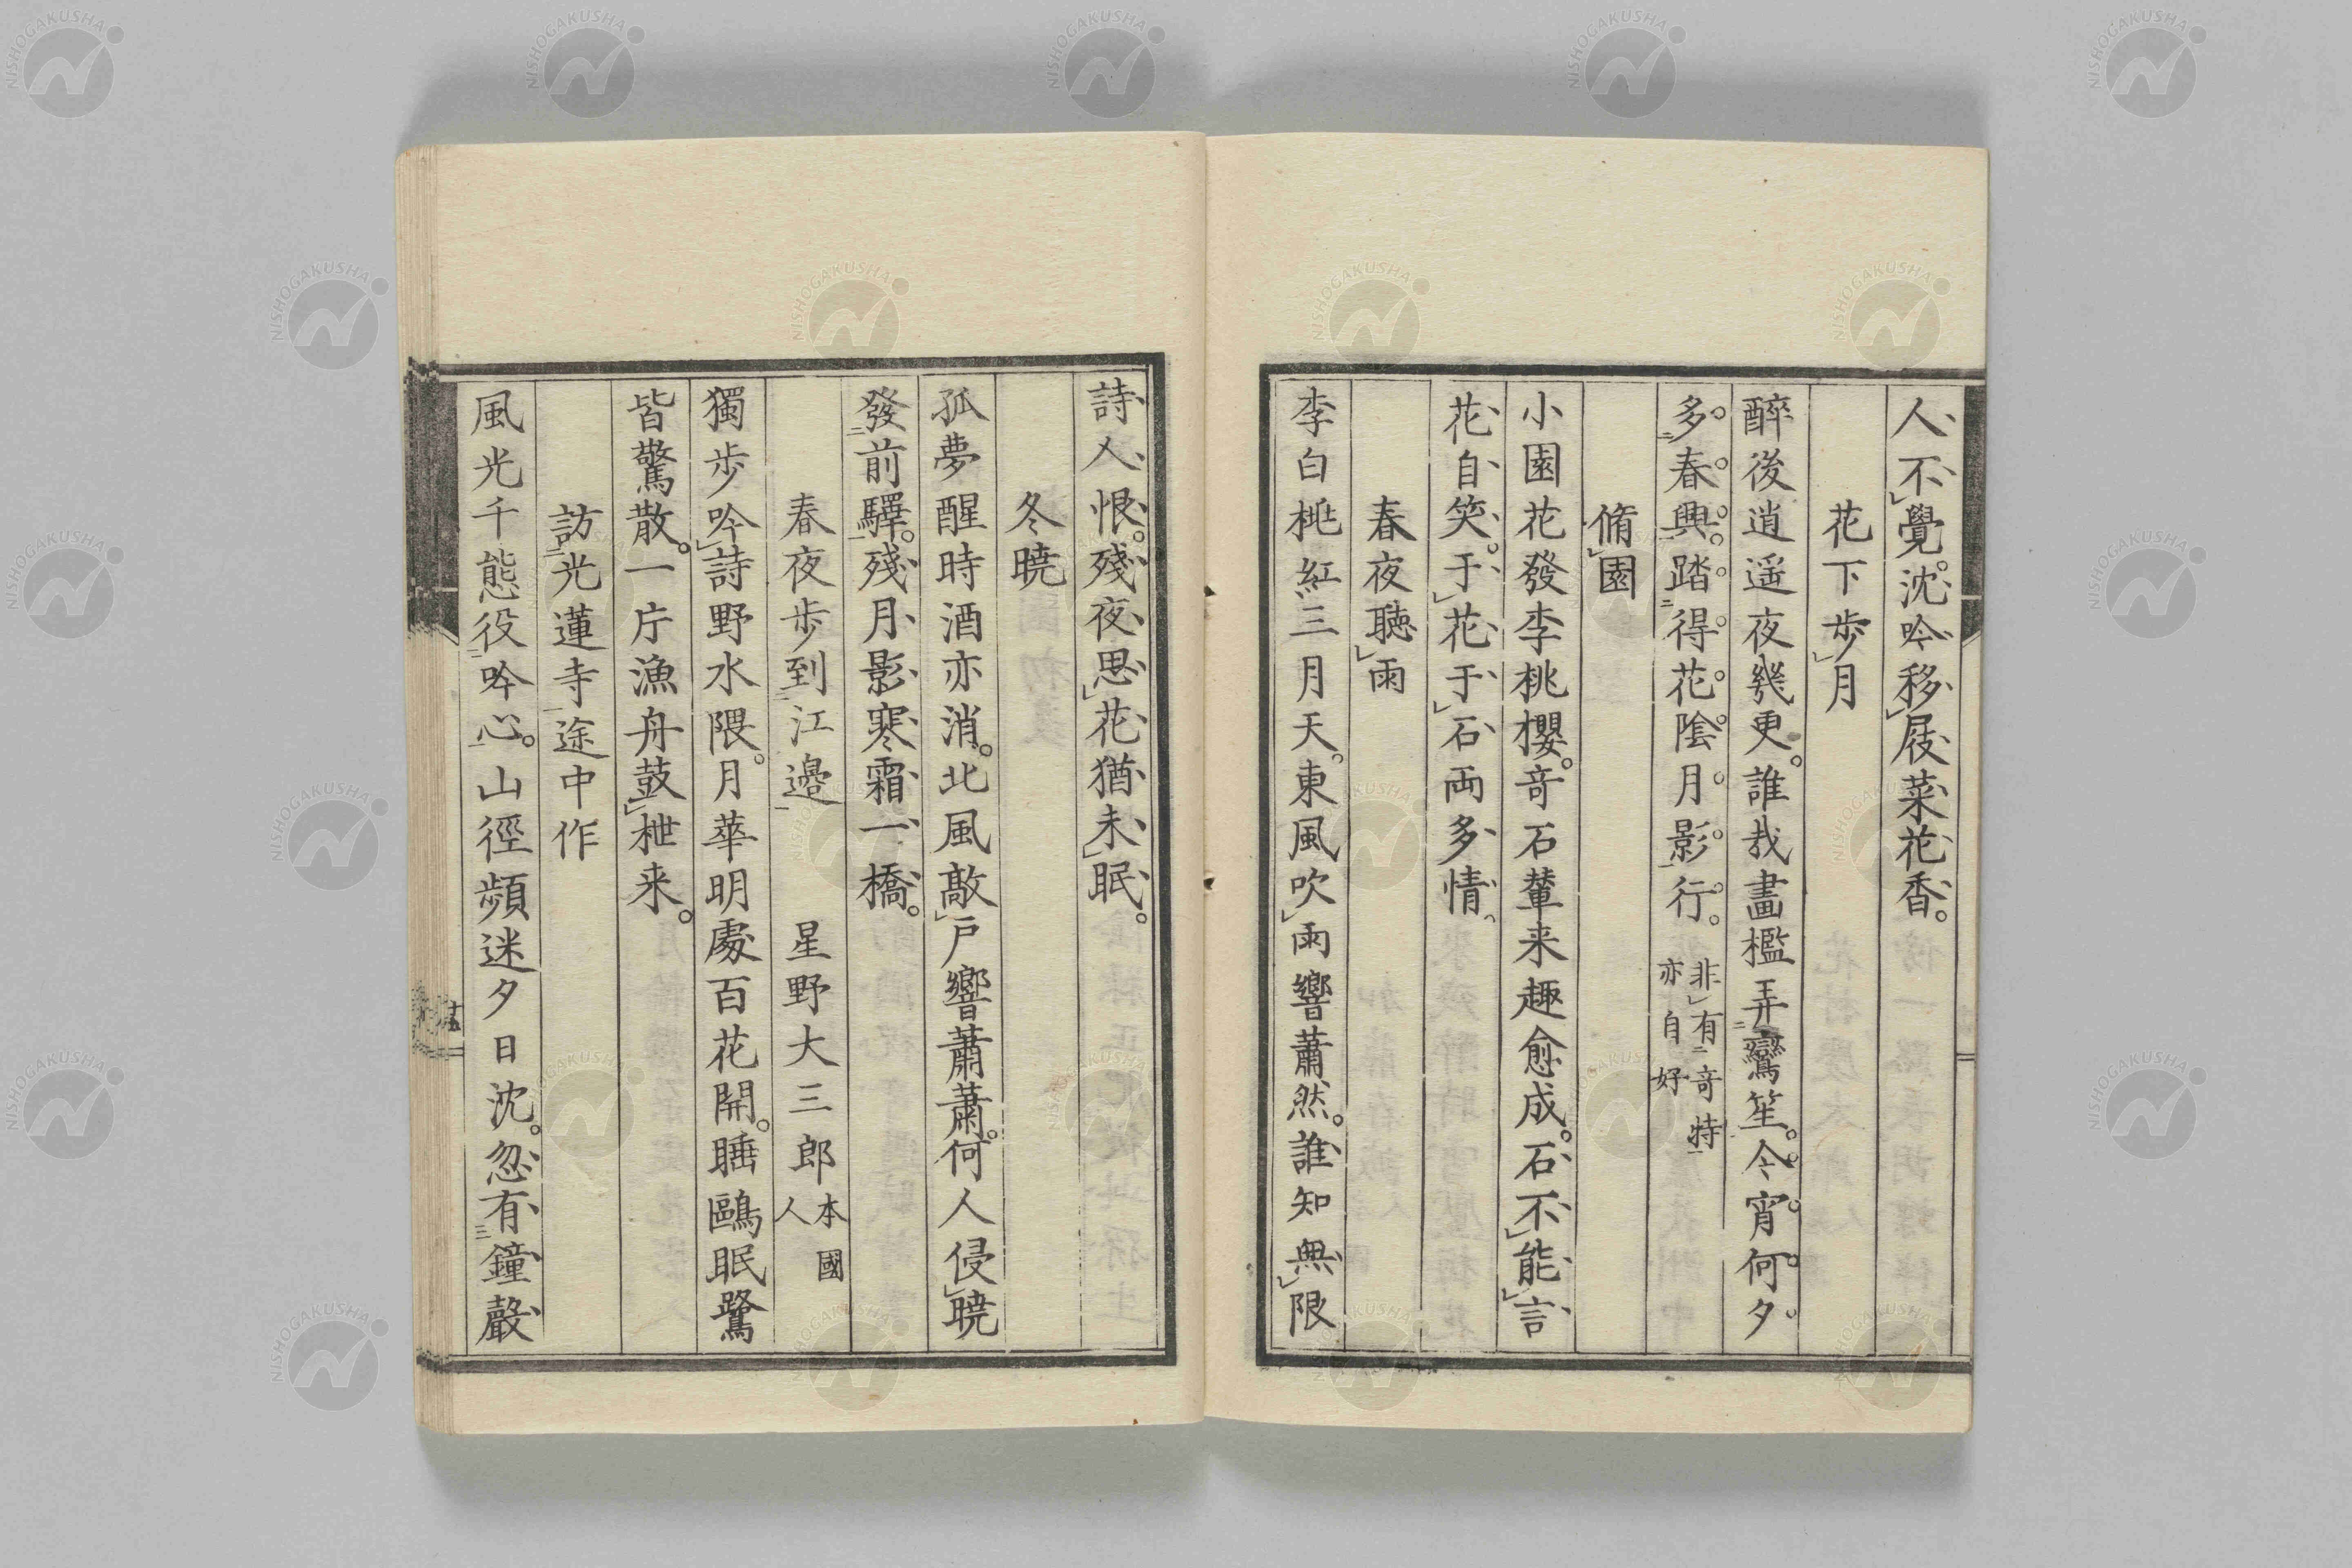 人不覺。沈吟移屐菜花香。
花下歩月
醉後逍遥夜幾更。誰哉畫檻弄鸞笙。今宵何夕
多春興。踏得花陰月影行。
非有奇特
亦自好
脩園
小園花發李桃櫻。奇石輦来趣愈成。石不能言
花自笑。于花于石両多情。
春夜聴雨
李白桃紅三月天。東風吹雨響蕭然。誰知無限
詩人恨。殘夜思花猶未眠。
冬曉
孤夢醒時酒亦消。北風敲戸響蕭蕭。何人侵曉
發前驛。殘月影寒霜一橋。
春夜歩到江邊 星野大三郎 本國人
獨歩吟詩野水隈。月華明處百花開。睡鷗眠鷺
皆驚散。一庁漁舟鼓枻来。
訪光蓮寺途中作
風光千態役吟心。山徑頻迷夕日沈。忽有鐘聲
十五
NISHOGAKUSHA